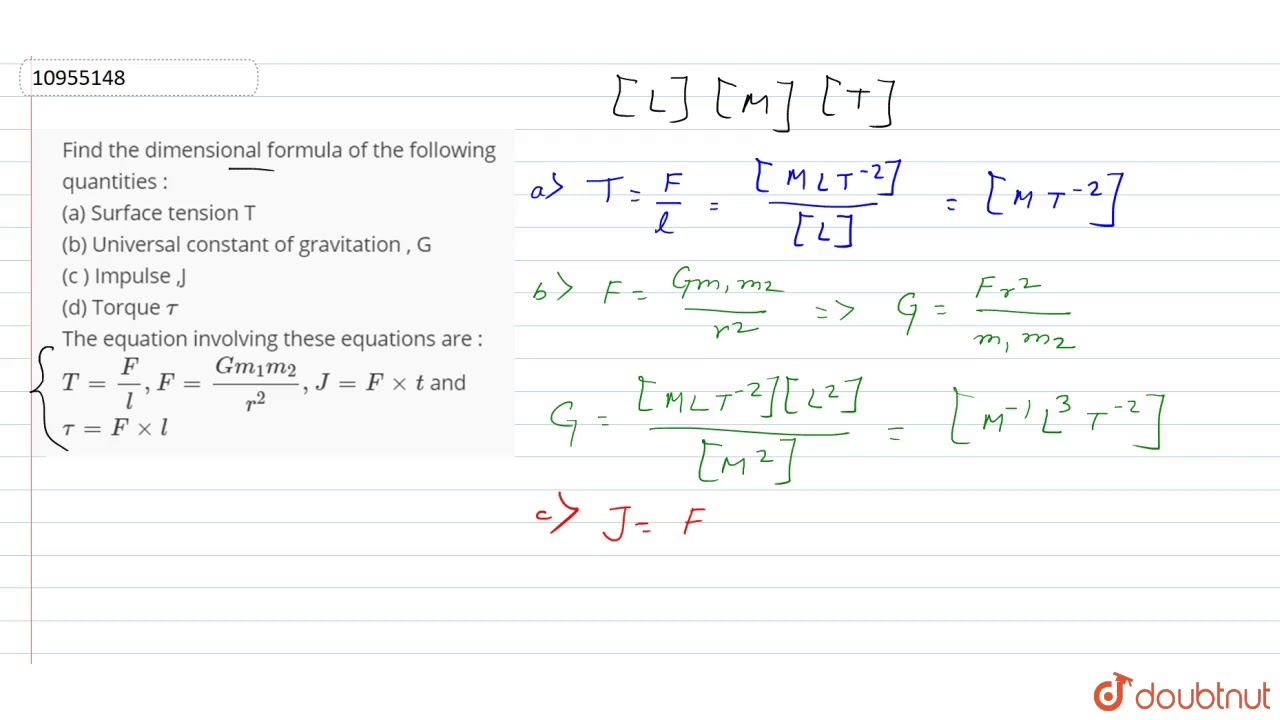 10955148
Find the dimensional formula of the following
quantities :
(a) Surface tension T
(b) Universal constant of gravitation , G
(c ) Impulse ,J
(d) Torque τ
The equation involving these equations are :
T = F/l, F = Gm₁m₂/r², J = F × t and
τ = F × l
[L] [M] [T]
a> T = F/l = [MLT⁻²]/[L] = [MT⁻²]
b> F = Gm₁m₂/r² => G = Fr²/m₁m₂
G = [MLT⁻²][L²]/[M²] = [M⁻¹L³T⁻²]
c> J = F
doubtnut